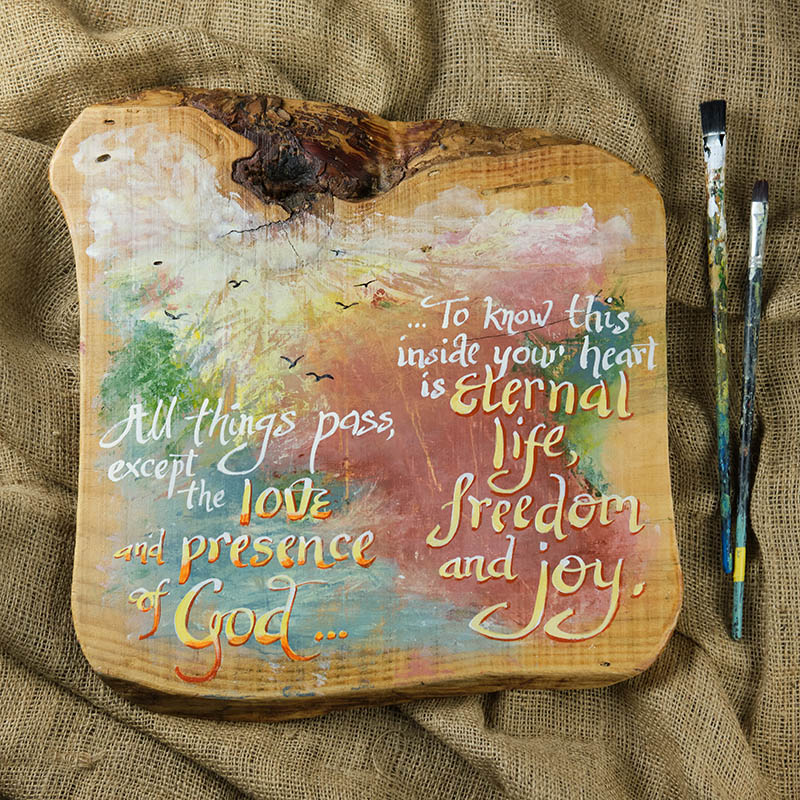 All things pass,
except
the love
and presence
of God...
...To know this
inside your heart
is Eternal
life,
freedom
and joy.